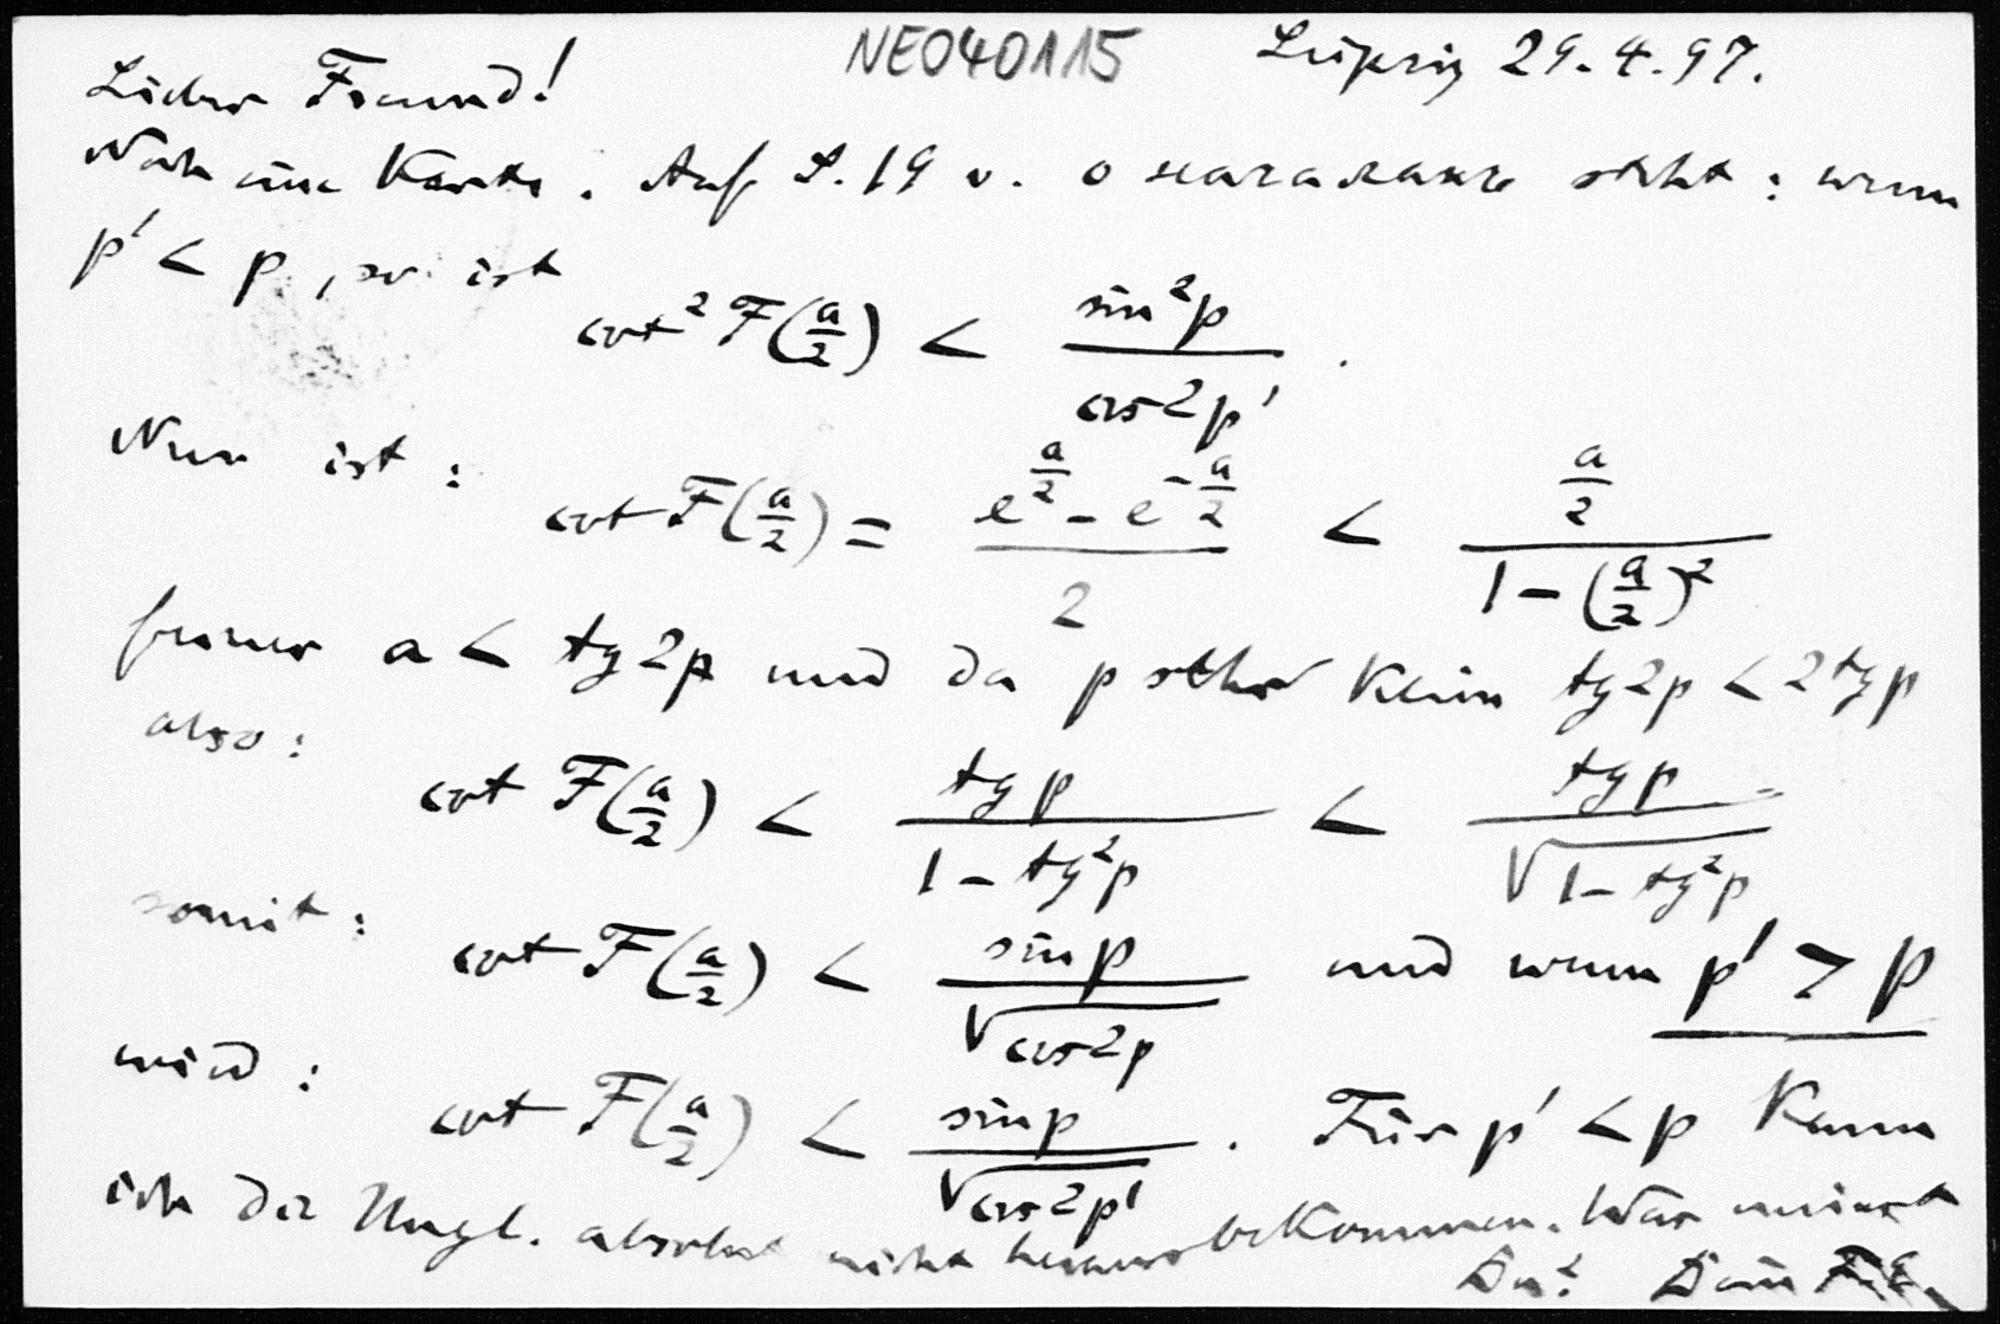 NEO40115
Leipzig 29.4.97.
Lieber Freund!
Noch eine Karte. Auf S. 19 v. о началахъ steht: wenn
p' < p, so ist
cot² F(a/2) < sin²p / cos2p' .
Nun ist: cot F(a/2) = (e^(a/2) - e^(-a/2)) / 2 < (a/2) / (1 - (a/2)²)
ferner a < tg2p und da p sehr klein tg2p < 2tgp
also: cot F(a/2) < tgp / (1 - tg²p) < tgp / √(1 - tg²p)
somit: cot F(a/2) < sinp / √cos2p und wenn p' > p
wird: cot F(a/2) < sinp / √cos2p' . Für p' < p kann
ich die Ungl. absolut nicht herausbekommen. Was meinst
Du? Dein